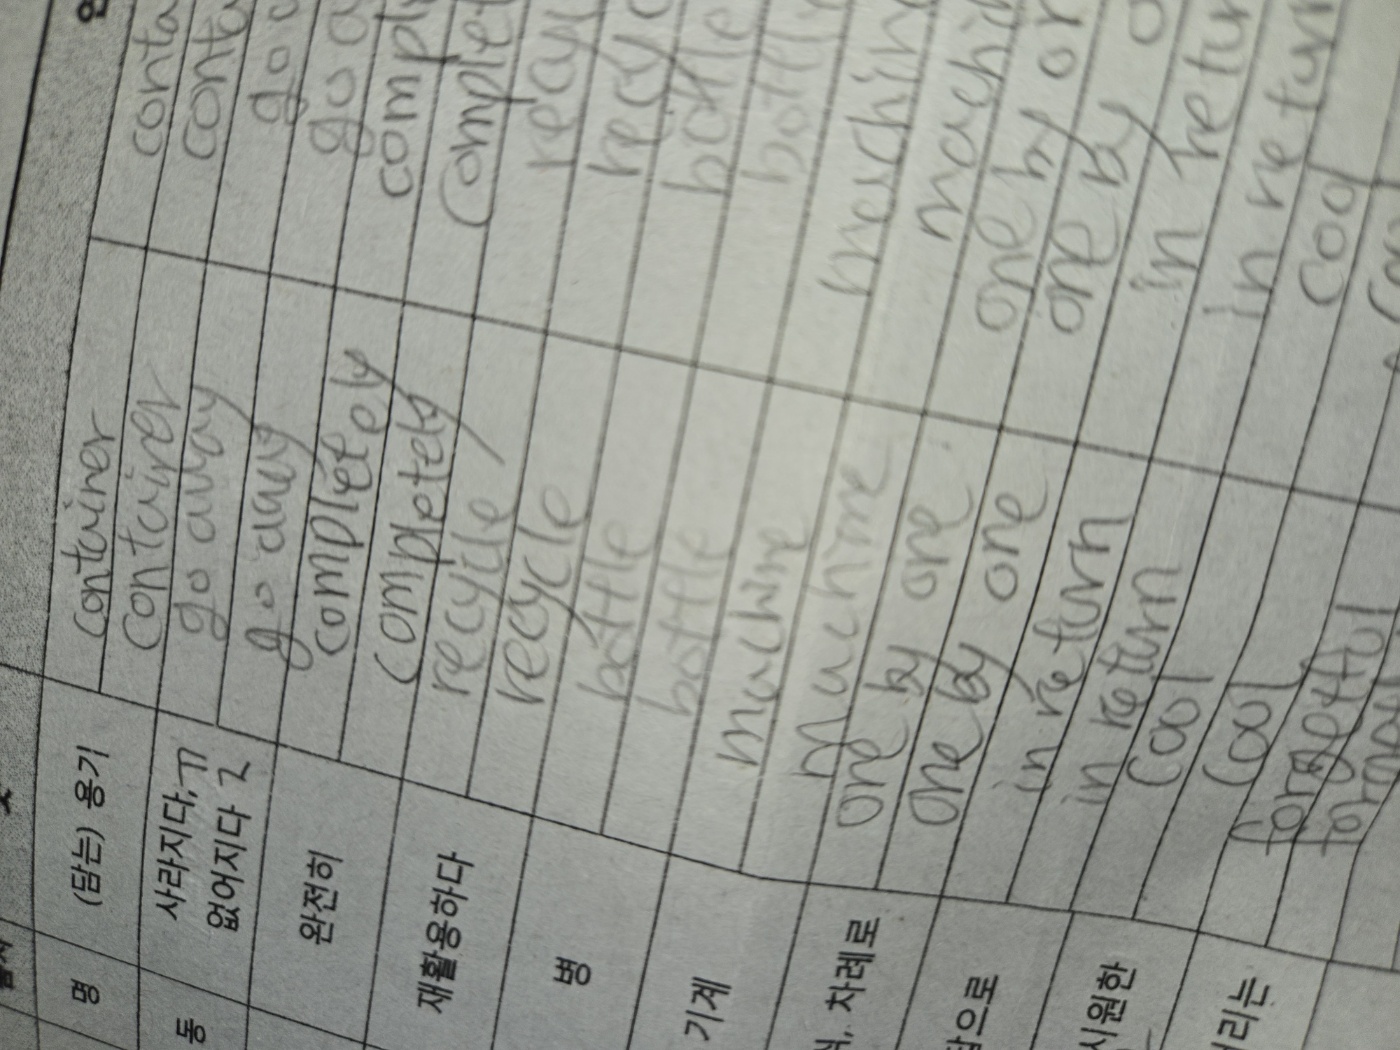 명 (담는) 용기 container conta
container conta
동 사라지다, go away go a
없어지다 go away go a
완전히 completely compl
completely complet
재활용하다 recycle recy
recycle recy
병 bottle bottle
bottle bottle
기계 machine machin
machine machi
차례로 one by one one by on
one by one one by o
답으로 in return in retur
in return in return
시원한 cool cool
cool
리는 forgetful